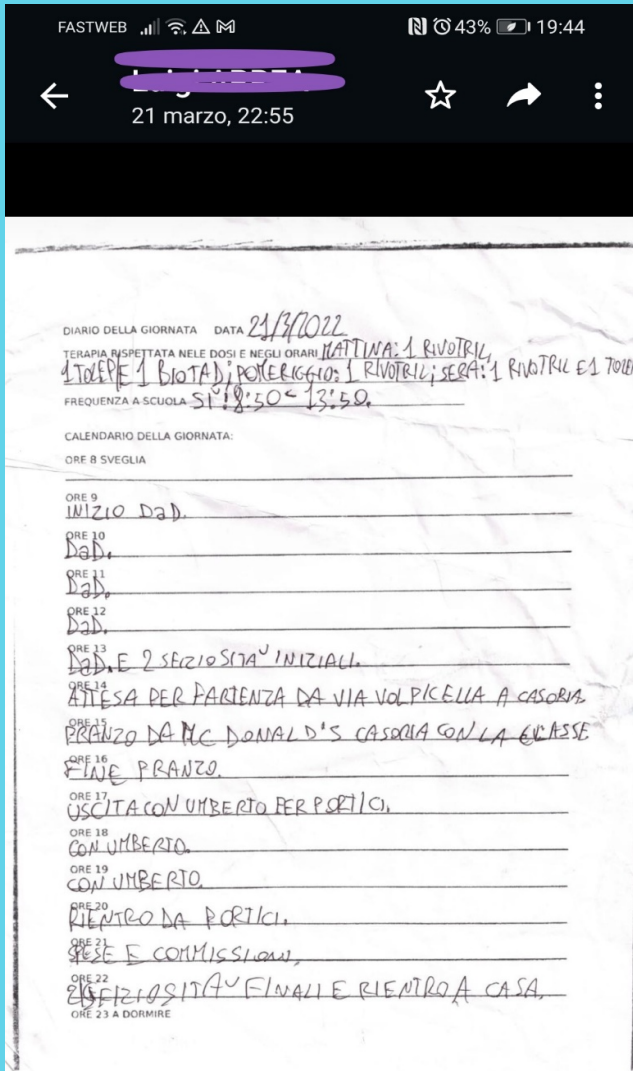 FASTWEB 43% 19:44
21 marzo, 22:55
DIARIO DELLA GIORNATA DATA 21/3/2022
TERAPIA RISPETTATA NELE DOSI E NEGLI ORARI MATTINA: 1 RIVOTRIL,
1 TOLEP E 1 BIOTAD; POMERIGGIO: 1 RIVOTRIL; SERA: 1 RIVOTRIL E 1 TOLEP
FREQUENZA A SCUOLA SI': 8:50 - 13:50.
CALENDARIO DELLA GIORNATA:
ORE 8 SVEGLIA
ORE 9
INIZIO DaD.
ORE 10
DaD.
ORE 11
DaD.
ORE 12
DaD.
ORE 13
DaD. E 2 INIZIALI.
ORE 14
ATTESA PER PARTENZA DA VIA VOLPICELLA A CASORIA.
ORE 15
PRANZO DA MC DONALD'S CASORIA CON LA CLASSE
ORE 16
FINE PRANZO.
ORE 17
USCITA CON UMBERTO PER PORTICI.
ORE 18
CON UMBERTO.
ORE 19
CON UMBERTO.
ORE 20
RIENTRO DA PORTICI.
ORE 21
SPESE E COMMISSIONI.
ORE 22
FINALI E RIENTRO A CASA.
ORE 23 A DORMIRE